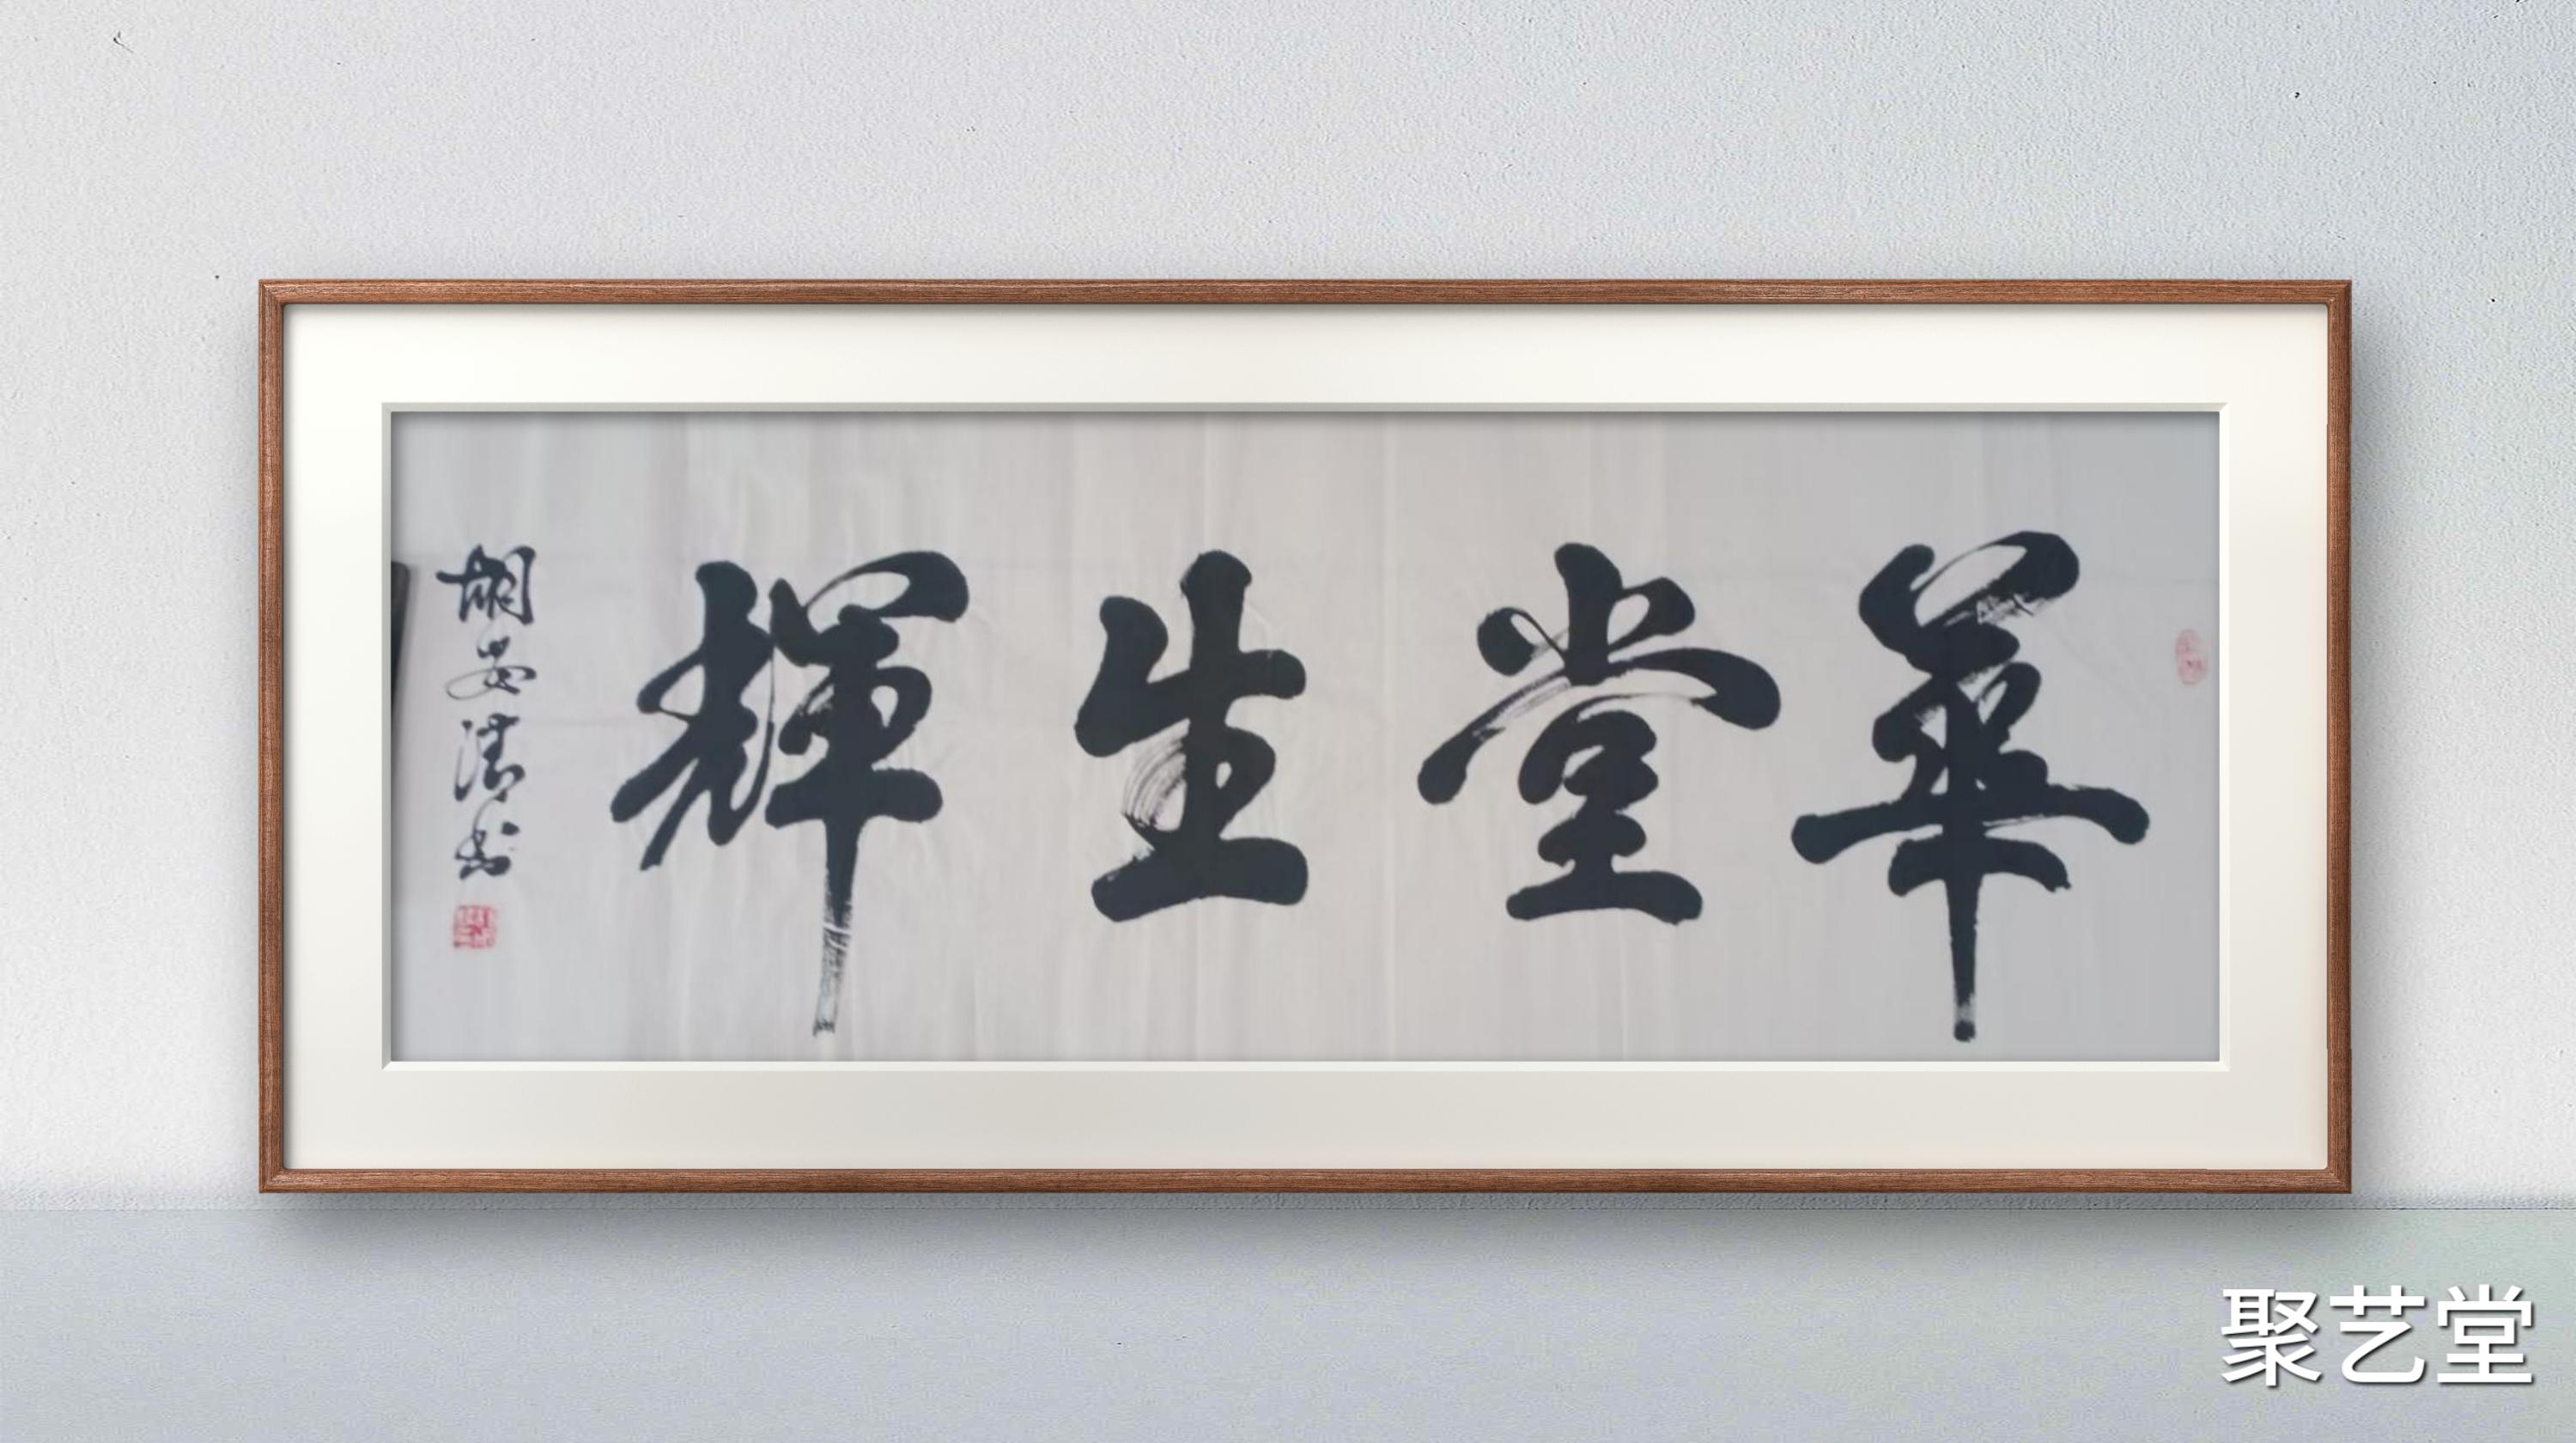 華堂生輝
胡安清书
聚艺堂